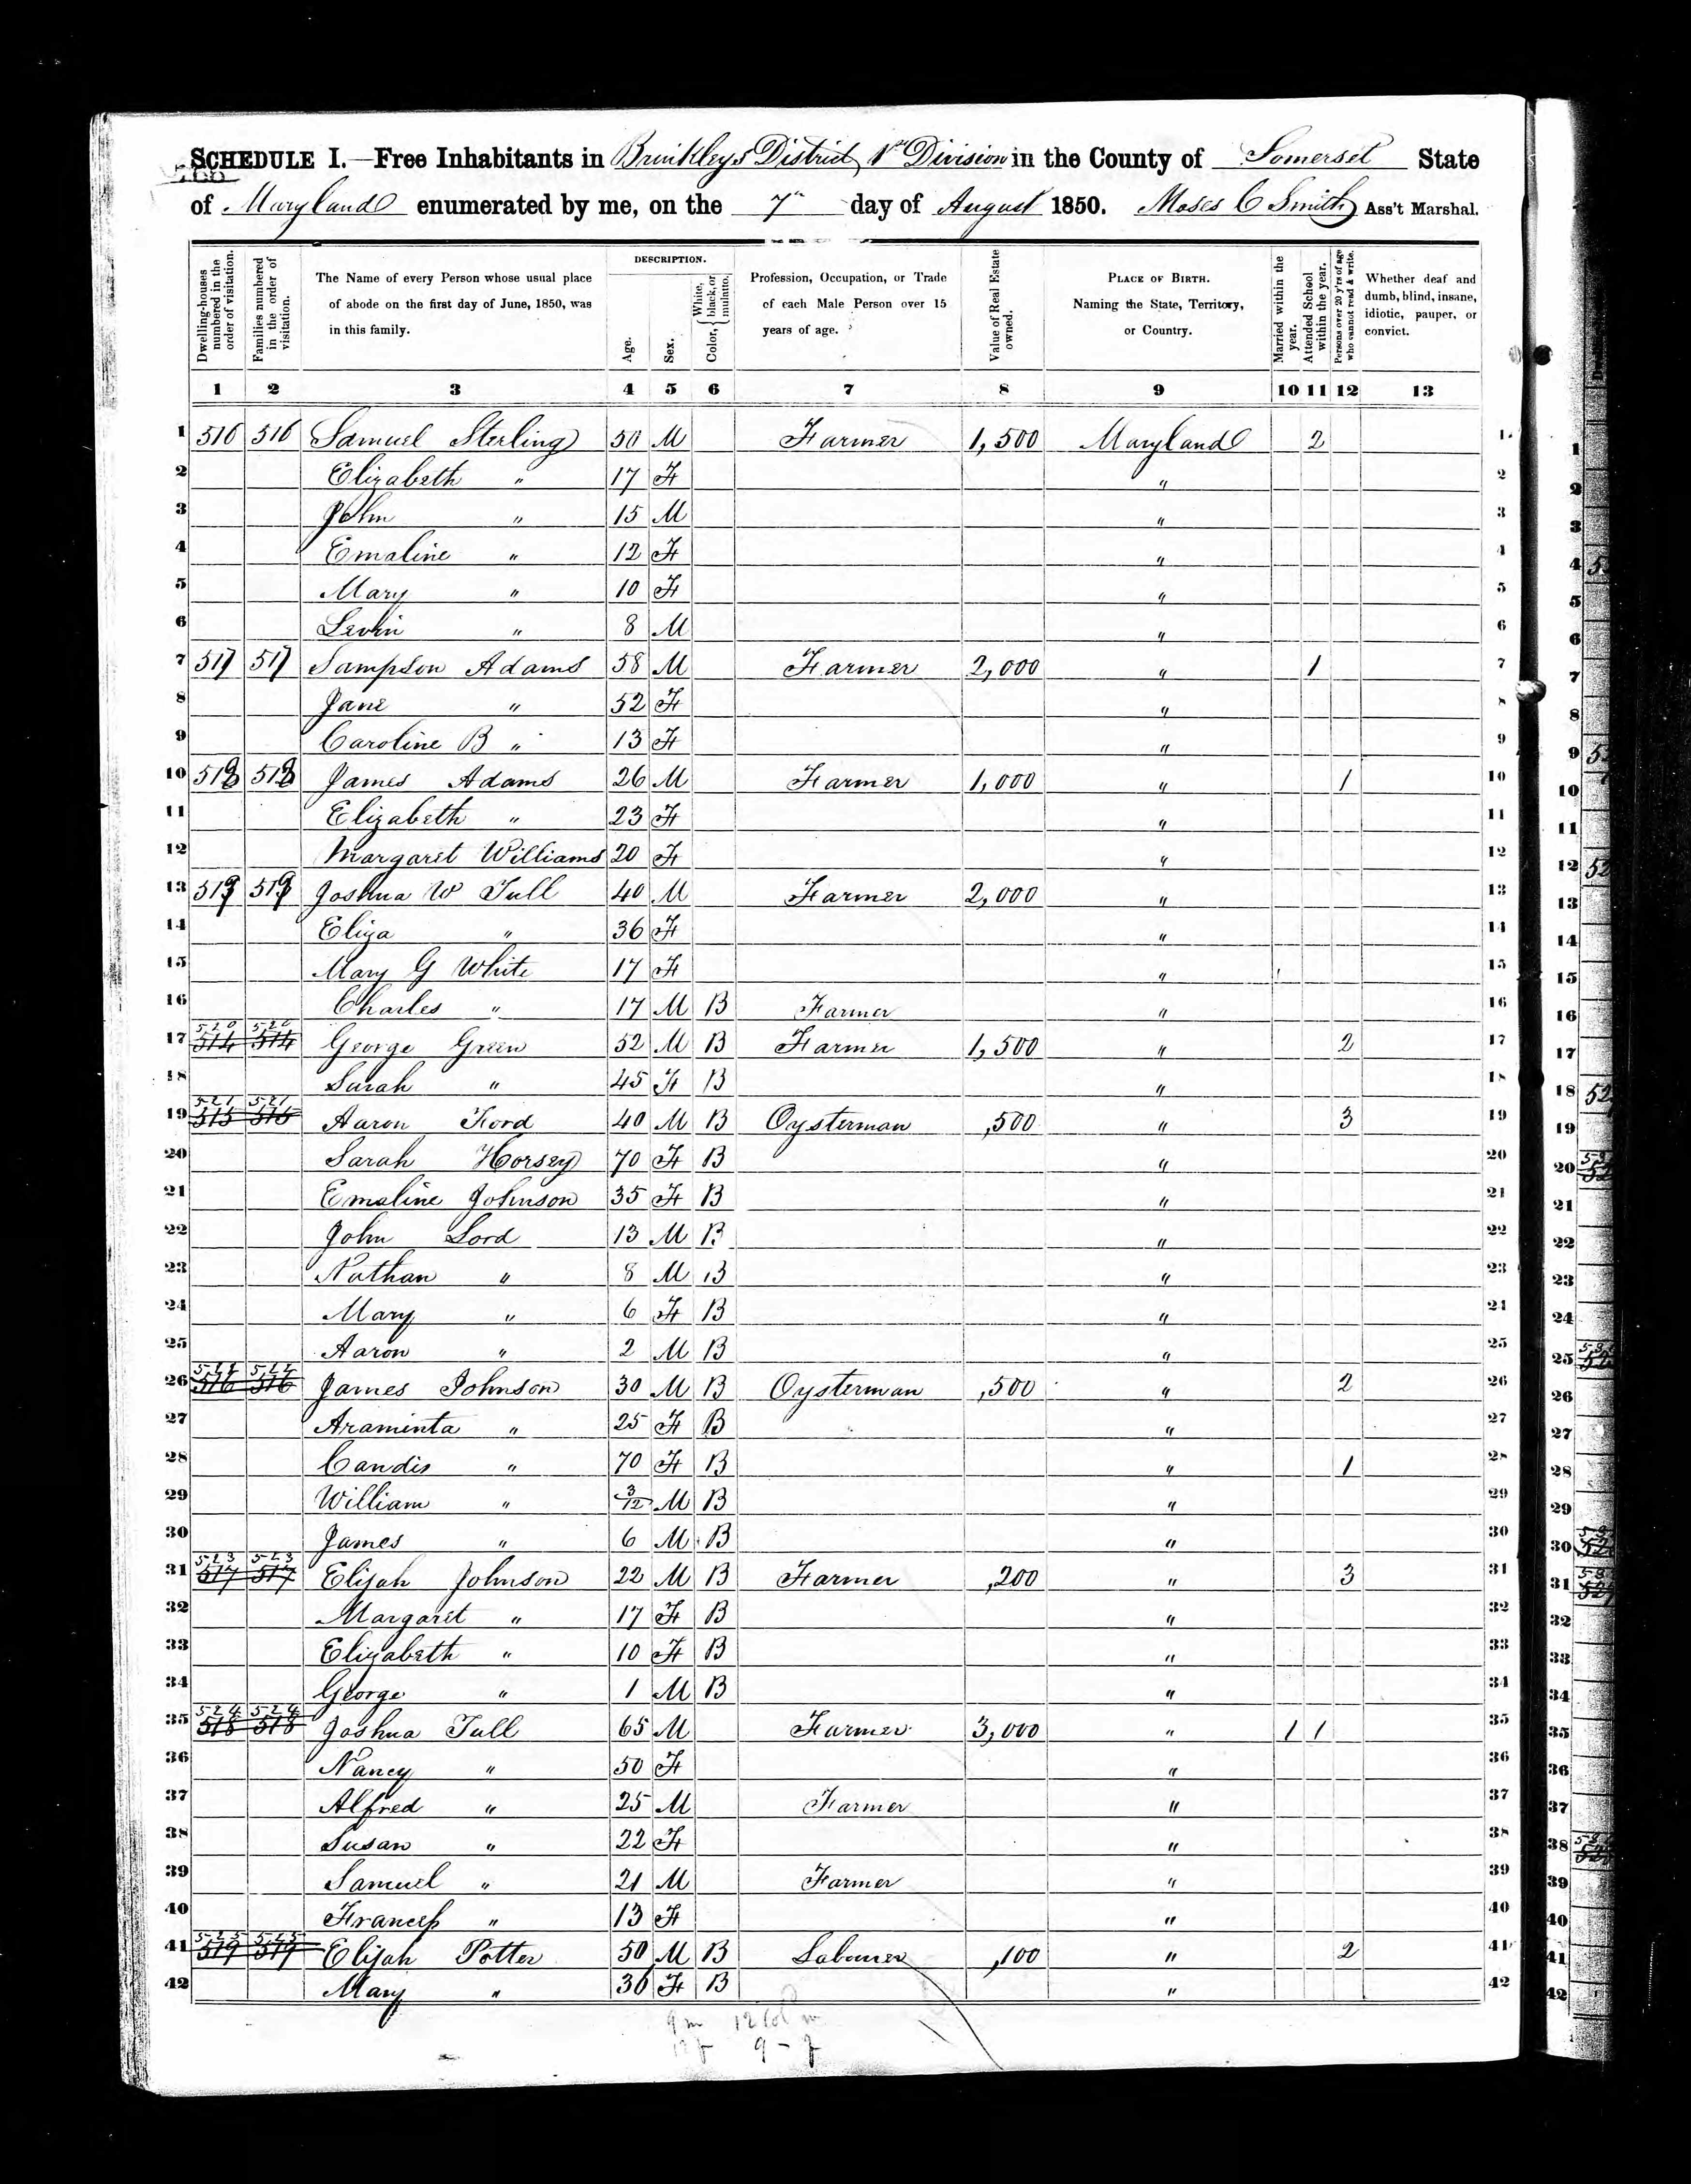 SCHEDULE I.—Free Inhabitants in Brinkleys District 1st Division in the County of Somerset State
of Maryland enumerated by me, on the 7th day of August 1850. Moses C Smith Ass't Marshal.
Dwelling-houses numbered in the order of visitation.
Families numbered in the order of visitation.
The Name of every Person whose usual place of abode on the first day of June, 1850, was in this family.
DESCRIPTION.
Age.
Sex.
Color, { White, black, or mulatto.
Profession, Occupation, or Trade of each Male Person over 15 years of age.
Value of Real Estate owned.
PLACE OF BIRTH. Naming the State, Territory, or Country.
Married within the year.
Attended School within the year.
Persons over 20 y'rs of age who cannot read & write.
Whether deaf and dumb, blind, insane, idiotic, pauper, or convict.
1 2 3 4 5 6 7 8 9 10 11 12 13
1 516 516 Samuel Sterling 50 M Farmer 1,500 Maryland 2 1
2 Elizabeth " 17 F " 2
3 John " 15 M " 3
4 Emaline " 12 F " 4
5 Mary " 10 F " 5
6 Levin " 8 M " 6
7 517 517 Sampson Adams 58 M Farmer 2,000 " 1 7
8 Jane " 52 F " 8
9 Caroline B " 13 F " 9
10 518 518 James Adams 26 M Farmer 1,000 " 1 10
11 Elizabeth " 23 F " 11
12 Margaret Williams 20 F " 12
13 519 519 Joshua W Tull 40 M Farmer 2,000 " 13
14 Eliza " 36 F " 14
15 Mary G White 17 F " 15
16 Charles " 17 M B Farmer " 16
520 520
17 514 514 George Green 52 M B Farmer 1,500 " 2 17
18 Sarah " 45 F B " 18
521 521
19 515 515 Aaron Ford 40 M B Oysterman ,500 " 3 19
20 Sarah Horsey 70 F B " 20
21 Emaline Johnson 35 F B " 21
22 John Lord 13 M B " 22
23 Nathan " 8 M B " 23
24 Mary " 6 F B " 24
25 Aaron " 2 M B " 25
522 522
26 516 516 James Johnson 30 M B Oysterman ,500 " 2 26
27 Araminta " 25 F B " 27
28 Candis " 70 F B " 1 28
29 William " 3/12 M B " 29
30 James " 6 M B " 30
523 523
31 517 517 Elijah Johnson 22 M B Farmer ,200 " 3 31
32 Margaret " 17 F B " 32
33 Elizabeth " 10 F B " 33
34 George " 1 M B " 34
524 524
35 518 518 Joshua Tull 65 M Farmer 3,000 " 1 1 35
36 Nancy " 50 F " 36
37 Alfred " 25 M Farmer " 37
38 Susan " 22 F " 38
39 Samuel " 21 M Farmer " 39
40 Francess " 13 F " 40
525 525
41 519 519 Elijah Potter 50 M B Labourer ,100 " 2 41
42 Mary " 36 F B " 42
9 m 12 col m
12 f 9 - f